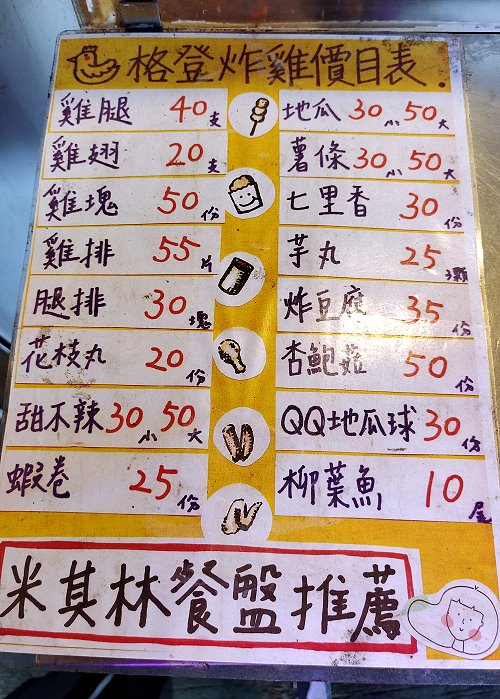 格登炸雞價目表.
雞腿 40支
雞翅 20支
雞塊 50份
雞排 55片
腿排 30塊
花枝丸 20份
甜不辣 30小 50大
蝦卷 25份
地瓜 30小 50大
薯條 30小 50大
七里香 30份
芋丸 25 3顆
炸豆腐 35份
杏鮑菇 50份
QQ地瓜球 30份
柳葉魚 10尾
米其林餐盤推薦